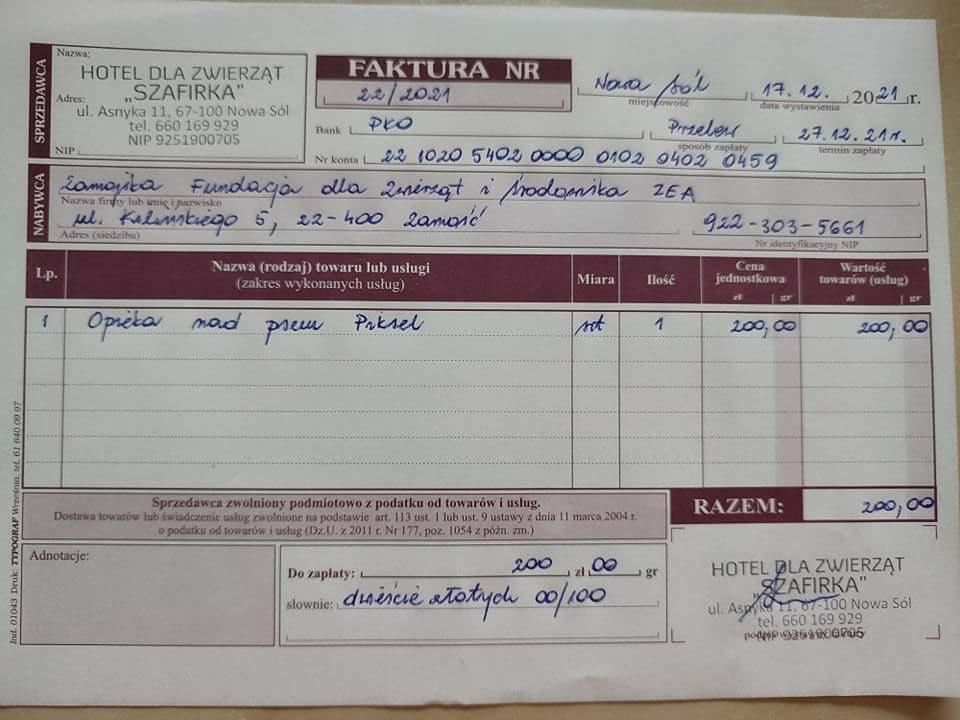 SPRZEDAWCA
Nazwa:
HOTEL DLA ZWIERZĄT
„SZAFIRKA"
Adres:
ul. Asnyka 11, 67-100 Nowa Sól
tel. 660 169 929
NIP 9251900705
NIP
FAKTURA NR
22/2021
Nowa Sól 17.12. 2021 r.
miejscowość data wystawienia
Bank PKO Przelew 27.12.21r.
sposób zapłaty termin zapłaty
Nr konta 22 1020 5402 0000 0102 0402 0459
NABYWCA
Zamojska Fundacja dla Zwierząt i Środowiska ZEA
Nazwa firmy lub imię i nazwisko
ul. Kilińskiego 5, 22-400 Zamość 922-303-5661
Adres (siedziba) Nr identyfikacyjny NIP
Lp. Nazwa (rodzaj) towaru lub usługi (zakres wykonanych usług) Miara Ilość Cena jednostkowa Wartość towarów (usług)
zł gr zł gr
1 Opieka nad psem Piksel szt 1 200,00 200,00
Sprzedawca zwolniony podmiotowo z podatku od towarów i usług.
Dostawa towarów lub świadczenie usług zwolnione na podstawie art. 113 ust. 1 lub ust. 9 ustawy z dnia 11 marca 2004 r.
o podatku od towarów i usług (Dz.U. z 2011 r. Nr 177, poz. 1054 z późn. zm.)
RAZEM: 200,00
Adnotacje:
Do zapłaty: 200 zł 00 gr
słownie: dwieście złotych 00/100
HOTEL DLA ZWIERZĄT
„SZAFIRKA"
ul. Asnyka 11, 67-100 Nowa Sól
tel. 660 169 929
NIP 9251900705
Ind. 01043 Druk: TYPOGRAF Września, tel. 61 640 09 97